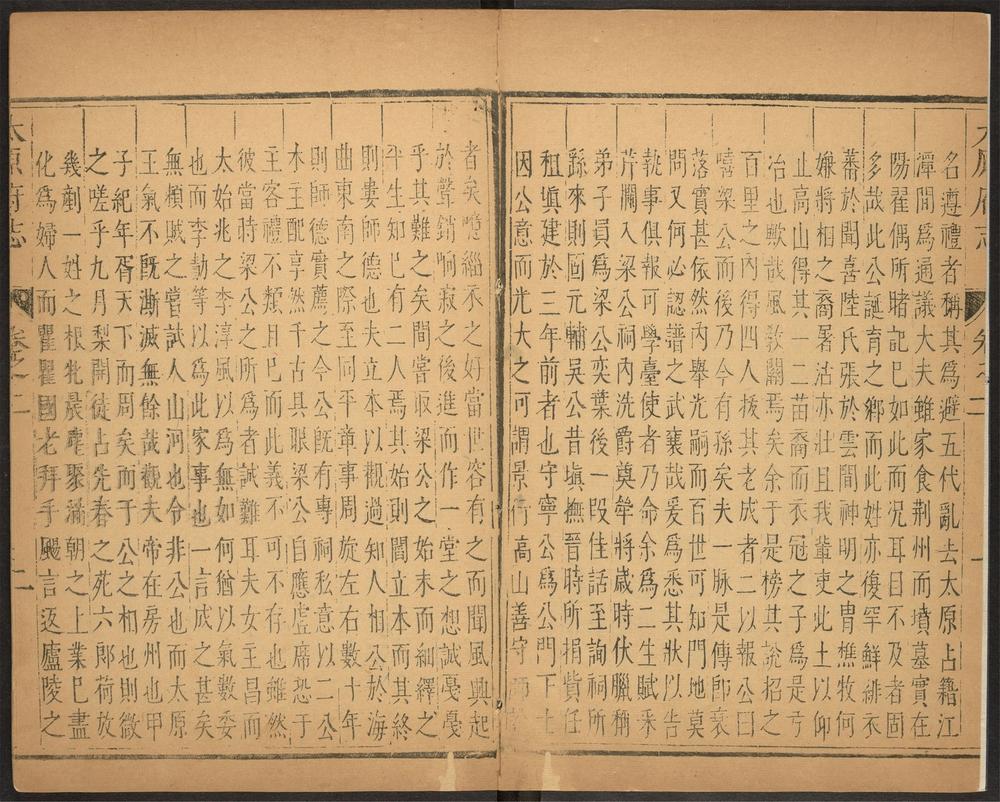 太原府志
卷之二
名遵禮者稱其爲避五代亂去太原占籍江
潭間爲通議大夫雖家食荆州而墳墓實在
陽翟偶所睹記已如此而况耳目不及者固
多哉此公誕育之鄉而此姓亦復罕鮮緋衣
蕃於聞喜陸氏張於雲間神明之胄樵牧何
嫌將相之裔署沽亦壯且我輩吏此土以仰
止高山得其一二苗裔而衣冠之子爲是亏
冶也歟哉風敎關焉矣余于是榜其說招之
百里之內得四人援其老成者二以報公曰
嘻梁公而後乃今有孫矣夫一脉是傳卽衰
落實甚依然內舉先嗣而百世可知門地莫
問又何必認譜之武襄哉爰爲悉其狀以告
執事俱報可學臺使者乃命余爲二生賦采
芹襴入梁公祠內洗爵奠斝將歲時伏臘稱
弟子員爲梁公奕葉後一段佳話至詢祠所
繇來則囧元輔吳公昔塡撫晉時所捐貲任
租塡建於三年前者也守寧公爲公門下士
因公意而光大之可謂景行高山善守師
者矣噫緇衣之好當世容有之而聞風興起
於聲銷响寂之後進而作一堂之想誠戞戞
乎其難之矣間嘗取梁公之始末而紬繹之
平生知巳有二人焉其始則閻立本而其終
則婁師德也夫立本以觀過知人相公於海
曲東南之際至同平章事周旋左右數十年
則師德實薦之今公旣有專祠私意以二公
木主配享然千古具眼梁公自應虛席恐于
主客禮不類且巳此義不可不存也雖然
彼當時梁公之所爲者誠難耳夫女主昌而
太始兆之李淳風以爲無如何猶以氣數委
也而李勣等以爲此家事也一言成之甚矣
無賴賊之嘗試人山河也令非公也而太原
王氣不旣漸滅無餘哉觀夫帝在房州也甲
子紀年胥天下而周矣而于公之相也則微
之嗟乎九月梨開徒占先春之死六郎荷放
幾劑一姓之根牝晨麀聚滿朝之上業巳盡
化爲婦人而瞿瞿國老拜手颺言返廬陵之
太原府志
卷之二